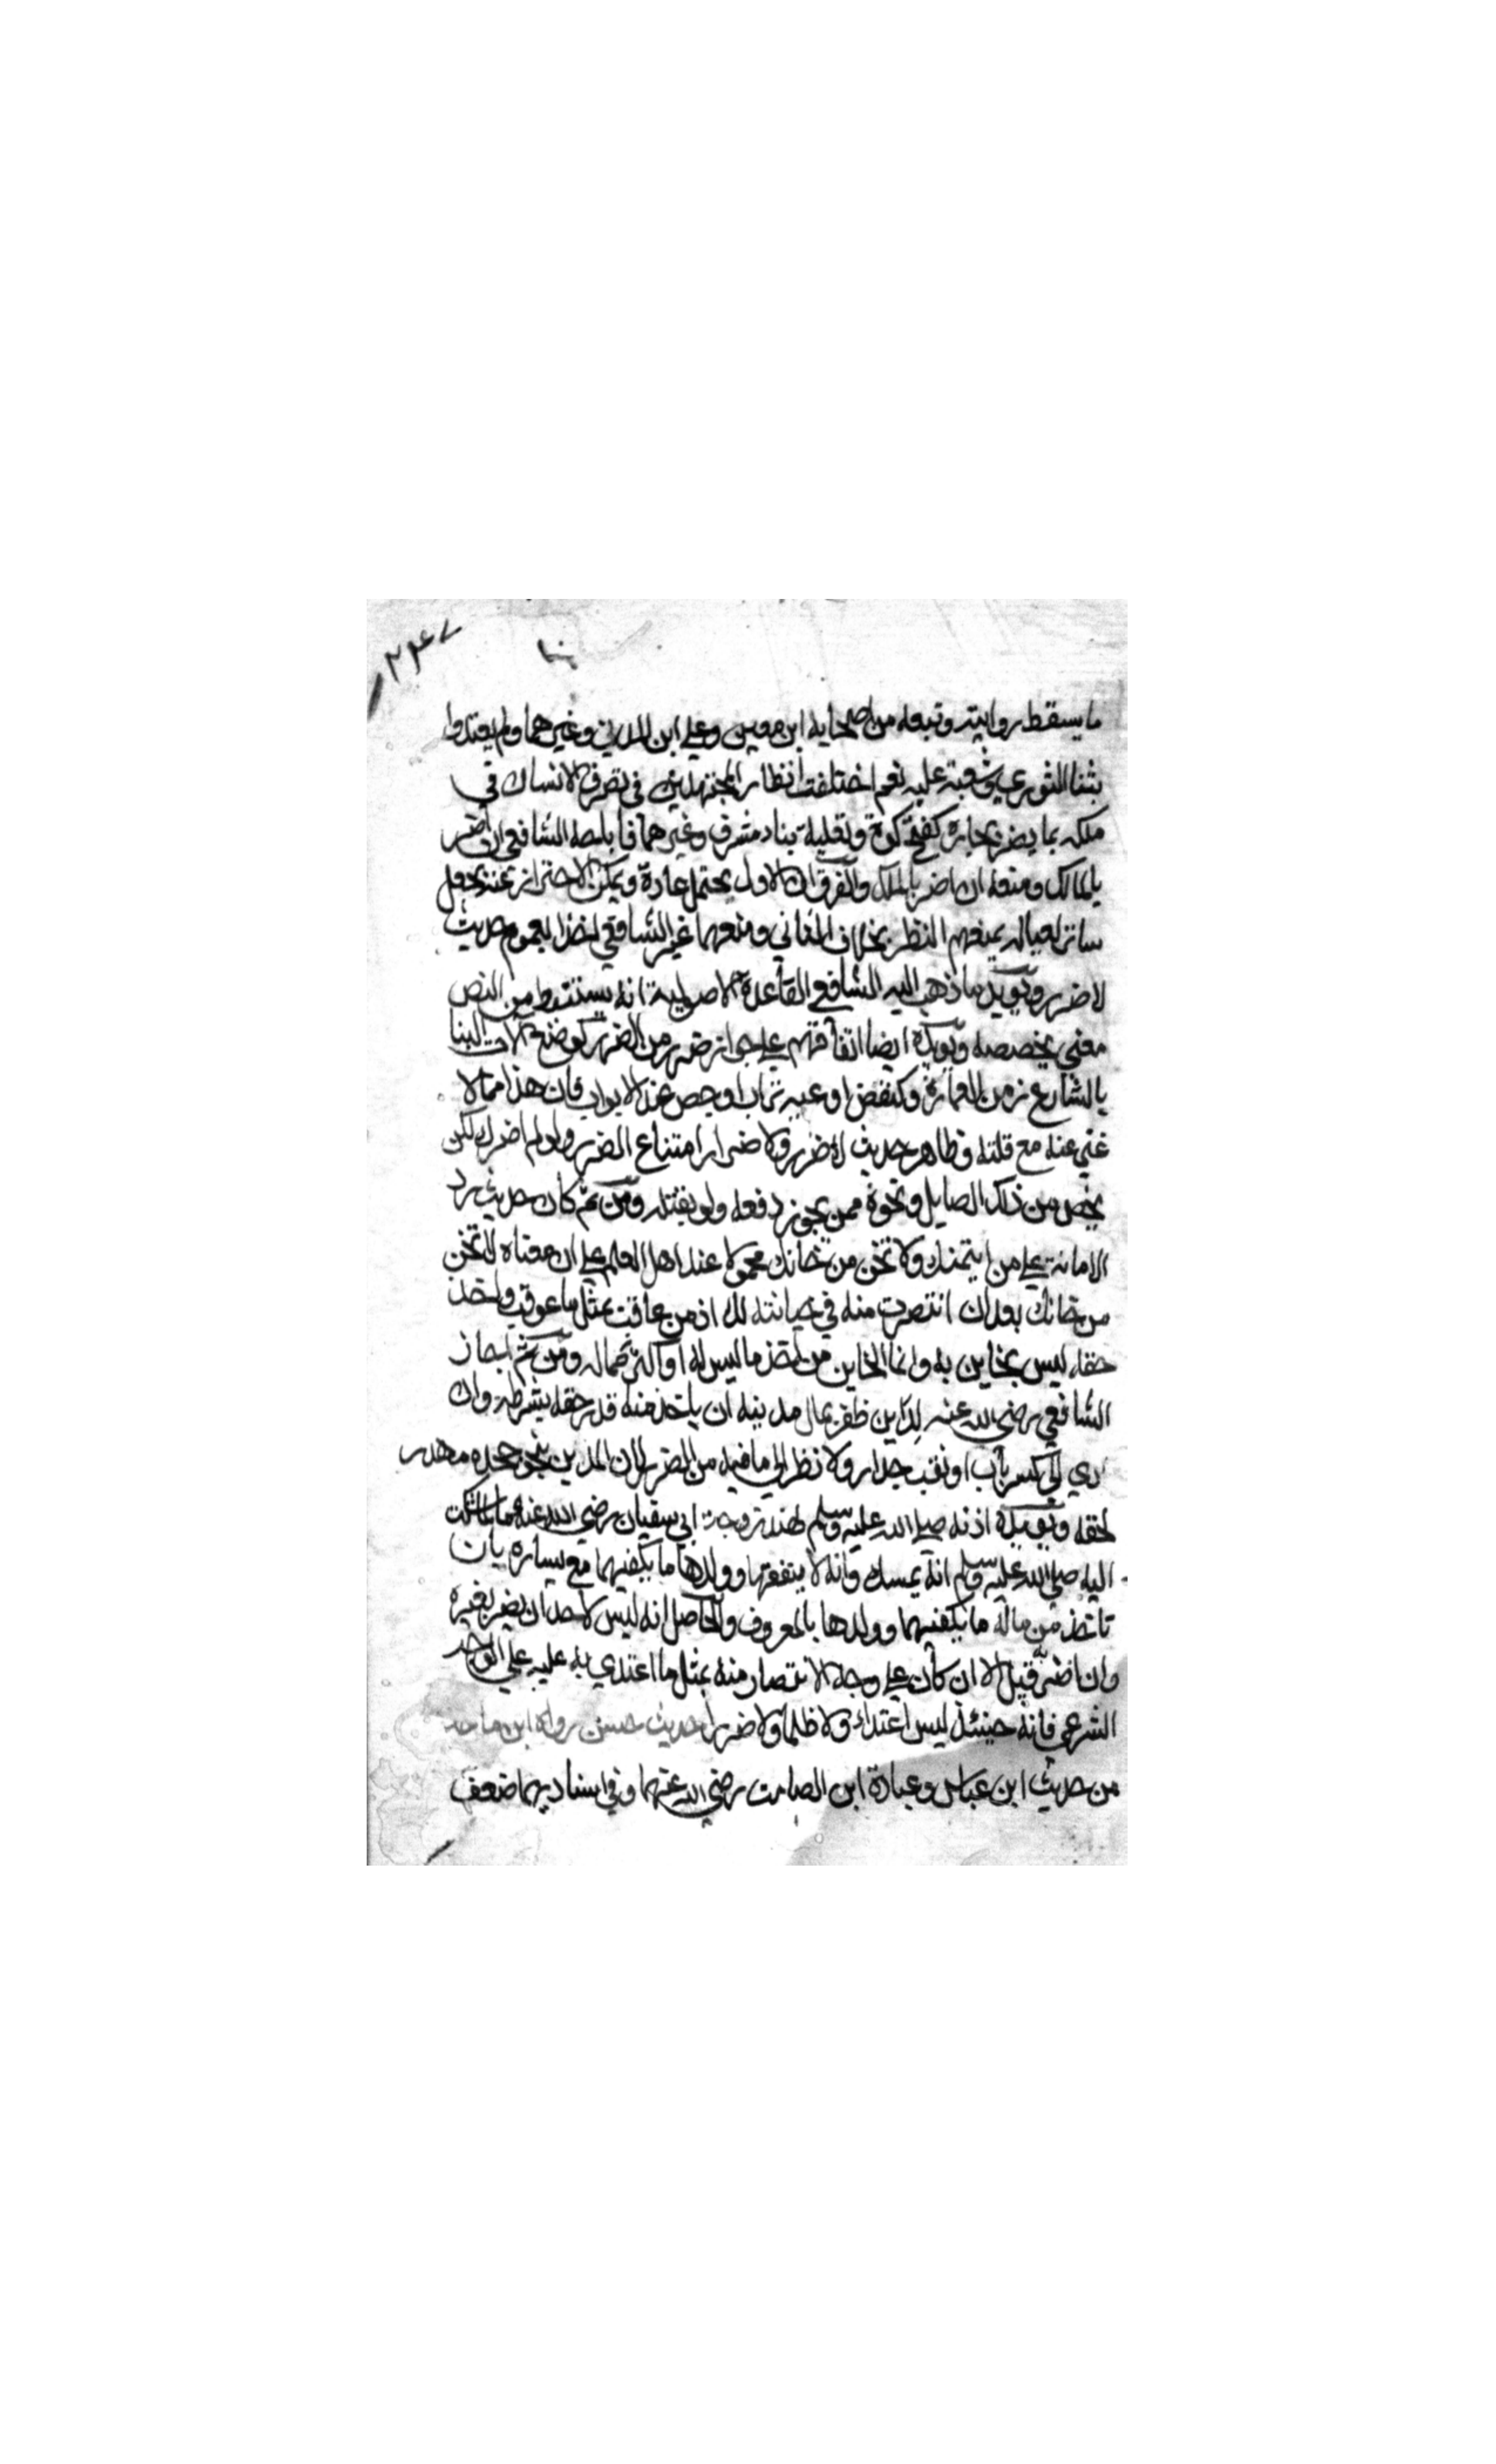 ٢٣٤٧
ما يسقط روايته وتبعه من اصحابه ابن معين وعلي ابن المديني وغيرهما ولم يعتدوا
بثنا الثوري وشعبة عليه نعم اختلفت انظار المجتهدين في تصرف الانسان في
ملكه بما يضر بجاره كفتح كوة وتعلية بناء مشرف وغيرهما فاباحه الشافعي ان اضر
بالمالك ومنعه ان اضر بالملك والفرق ان الاول يحتمل عادة ويمكن الاحتراز عنه بجعل
ساتر لعياله يمنعهم النظر بخلاف الثاني ومنعهما غير الشافعي اخذا بعموم حديث
لا ضرر ويويد ما ذهب اليه الشافعي القاعدة الاصولية انه يستنبط من النص
معني يخصصه ويويده ايضا اتفاقهم علي جواز ضرر من الضرر كوضع الات البنا
بالشارع زمن العمارة وكنفض اوعية تراب او جص عند الابواب فان هذا مما لا
غني عنه مع قلته وظاهر حديث لا ضرر ولا ضرار امتناع الضرر ولو لم اضرك لكن
يخص من ذلك الصايل ونحوه ممن يجوز دفعه ولو بقتله ومن ثم كان حديث رد
الامانة علي من ايتمنك ولا تخن من خانك محمولا عند اهل العلم علي ان معناه لا تخن
من خانك بعد ان انتصرت منه في خيانته لك اذ من عاقب بمثل ما عوقب واخذ
حقه ليس بخاين به وانما الخاين من اخذ ما ليس له او اكثر مما له ومن ثم اجاز
الشافعي رضي الله عنه لداين ظفر بمال مدينه ان ياخذ منه قدر حقه بشرطه وان
ادي الي كسر باب او نقب جدار ولا نظر الي ما فيه من الضرر لان المدين بنحو جحده مهدر
لحقه ويويده اذنه صلي الله عليه وسلم لهند زوجة ابي سفيان رضي الله عنهما لما شكت
اليه صلي الله عليه وسلم انه يمسك وانه لا ينفقها وولدها ما يكفيهما مع يساره بان
تاخذ من ماله ما يكفيهما وولدها بالمعروف والحاصل انه ليس لاحد ان يضر بغيره
وان اضر قبل الا ان كان علي وجه الانتصار منه بمثل ما اعتدي به عليه علي الوجه
الشرعي فانه حينئذ ليس اعتداء ولا ظلما ولا ضرارا حديث حسن رواه ابن ماجه
من حديث ابن عباس وعبادة ابن الصامت رضي الله عنهما وفي اسناديهما ضعف